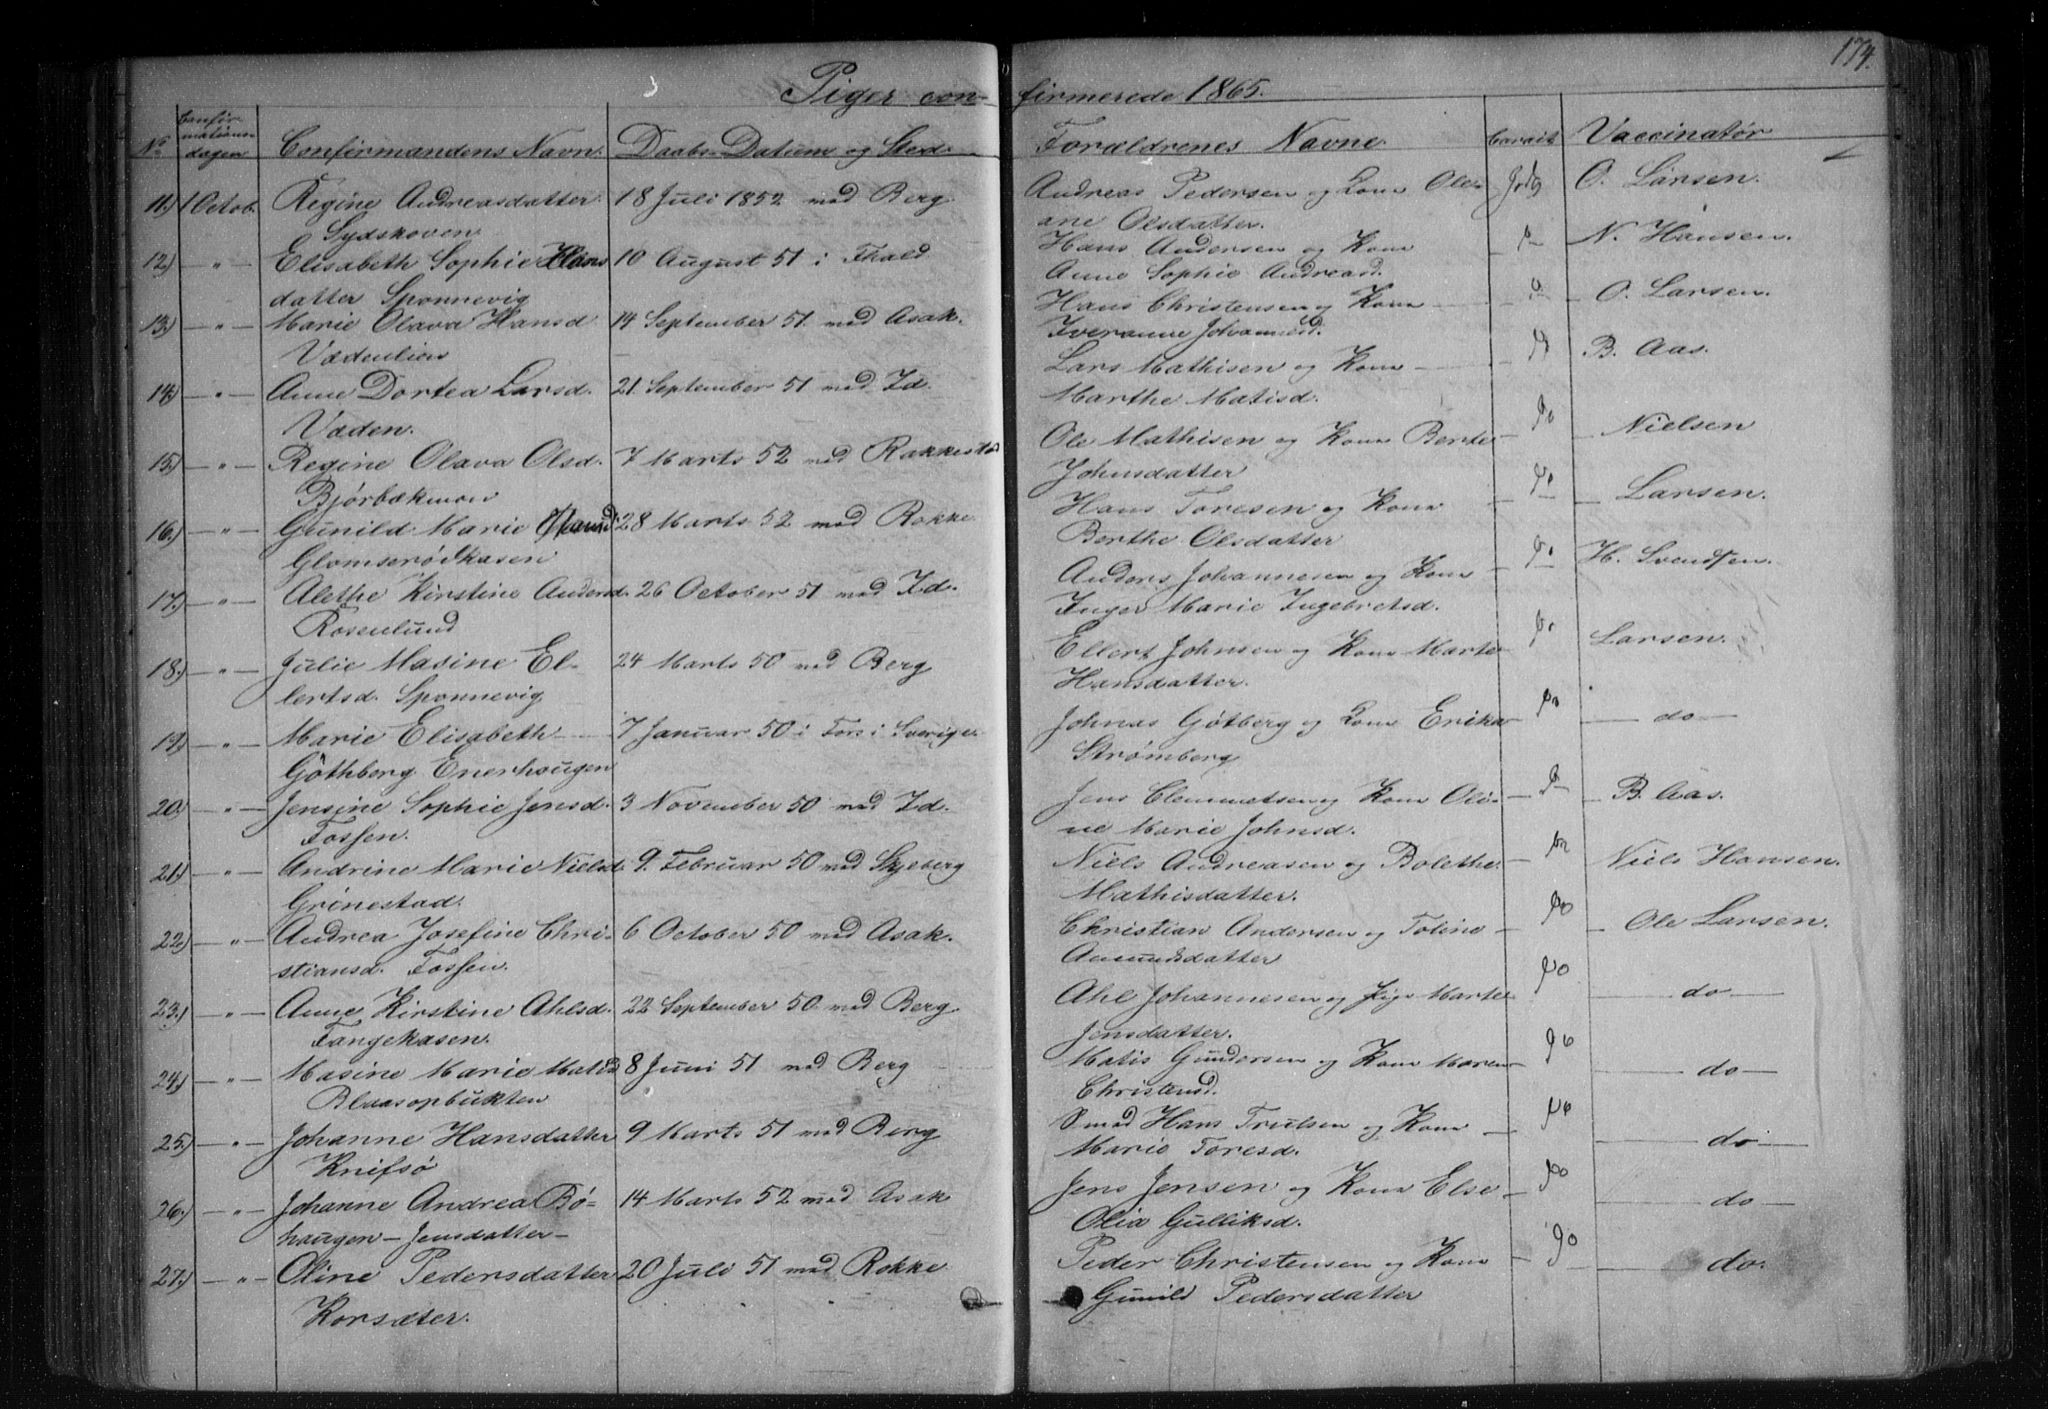 174.
Piger con- firmerede 1865.
No Confirmationsdagen Confirmandens Navn. Daabs-Datum og Sted. Forældrenes Navne. Caract Vaccinatør
11.) 1 Octob. Regine Andreasdatter 18 Juli 1852 med Berg Andreas Pedersen og Kone Ole- O. Larsen.
Sydskoven ane Olsdatter.
12.) — " — Elisabeth Sophie Hans 10 August 51 i Fhald Hans Andersen og Kone N. Hansen.
datter Sponnevig Anne Sophie Andreasd.
13.) — " — Marie Olava Hansd 14 September 51 med Asak. Hans Christensen og Kone O. Larsen.
Vædenlien Iveranne Johannesd.
14.) — " — Anne Dortea Larsd. 21. September 51 med Id. Lars Mathisen og Kone B. Aas.
Væden. Marthe Matisd.
15.) — " — Regine Olava Olsd. 7 Marts 52 med Rakkestad Ole Mathisen og Kone Berte Nielsen
Bjørbækmoen Johnsdatter
16.) — " — Gunild Marie Hansd 28 Marts 52 med Rokke Hans Toresen og Kone Larsen.
Glomserødkasen Berthe Olsdatter
17.) — " — Alethe Kirstine Andersd. 26 October 51 med Id. Anders Johannesen og Kone H. Svendsen.
Rosenlund Inger Marie Ingebretsd.
18.) — " — Julie Masine El- 24 Marts 50 med Berg Ellert Johnsen og Kone Marte Larsen.
lertsd. Sponnevig Hansdatter.
19.) — " — Marie Elisabeth 7 Januar 50 i Fors i Sverige Johnas Gøtberg og Kone Erika — do —
Göthberg Enerhougen Strømberg
20.) — " — Jensine Sophie Jensd. 3 November 50 med Id. Jens Clemmetsen og Kone Oli- B. Aas.
Fossen. ne Marie Johnsd.
21.) — " — Andrine Marie Nielsd. 9. Februar 50 med Skjeberg Niels Andreasen og Bolethe Niels Hansen.
Grinestad. Mathisdatter.
22.) — " — Andrea Josefine Chri- 6 October 50 med Asak. Christian Andersen og Toline Ole Larsen.
stiansd. Fossen. Amundsdatter
23.) — " — Anne Kirstine Ahlsd. 22 September 50 med Berg Ahl Johannesen og Pige Marte do —
Tangekasen. Jensdatter.
24.) — " — Masine Marie Matisd 8 Juni 51 med Berg Matis Gundersen og Kone Maren do —
Blaasopbukten Christensd.
25.) — " — Johanne Hansdatter 9 Marts 51 med Berg Smed Hans Trulsen og Kone do —
Knifsö Marie Toresd.
26.) — " — Johanne Andrea Bø- 14 Marts 52 med Asak Jens Jensen og Kone Else do —
haugen — Jensdatter — Olia Gulliksd.
27.) — " — Oline Pedersdatter 20 Juli 51 med Rokke Peder Christensen og Kone do.
Korsæter. Gunild Pedersdatter